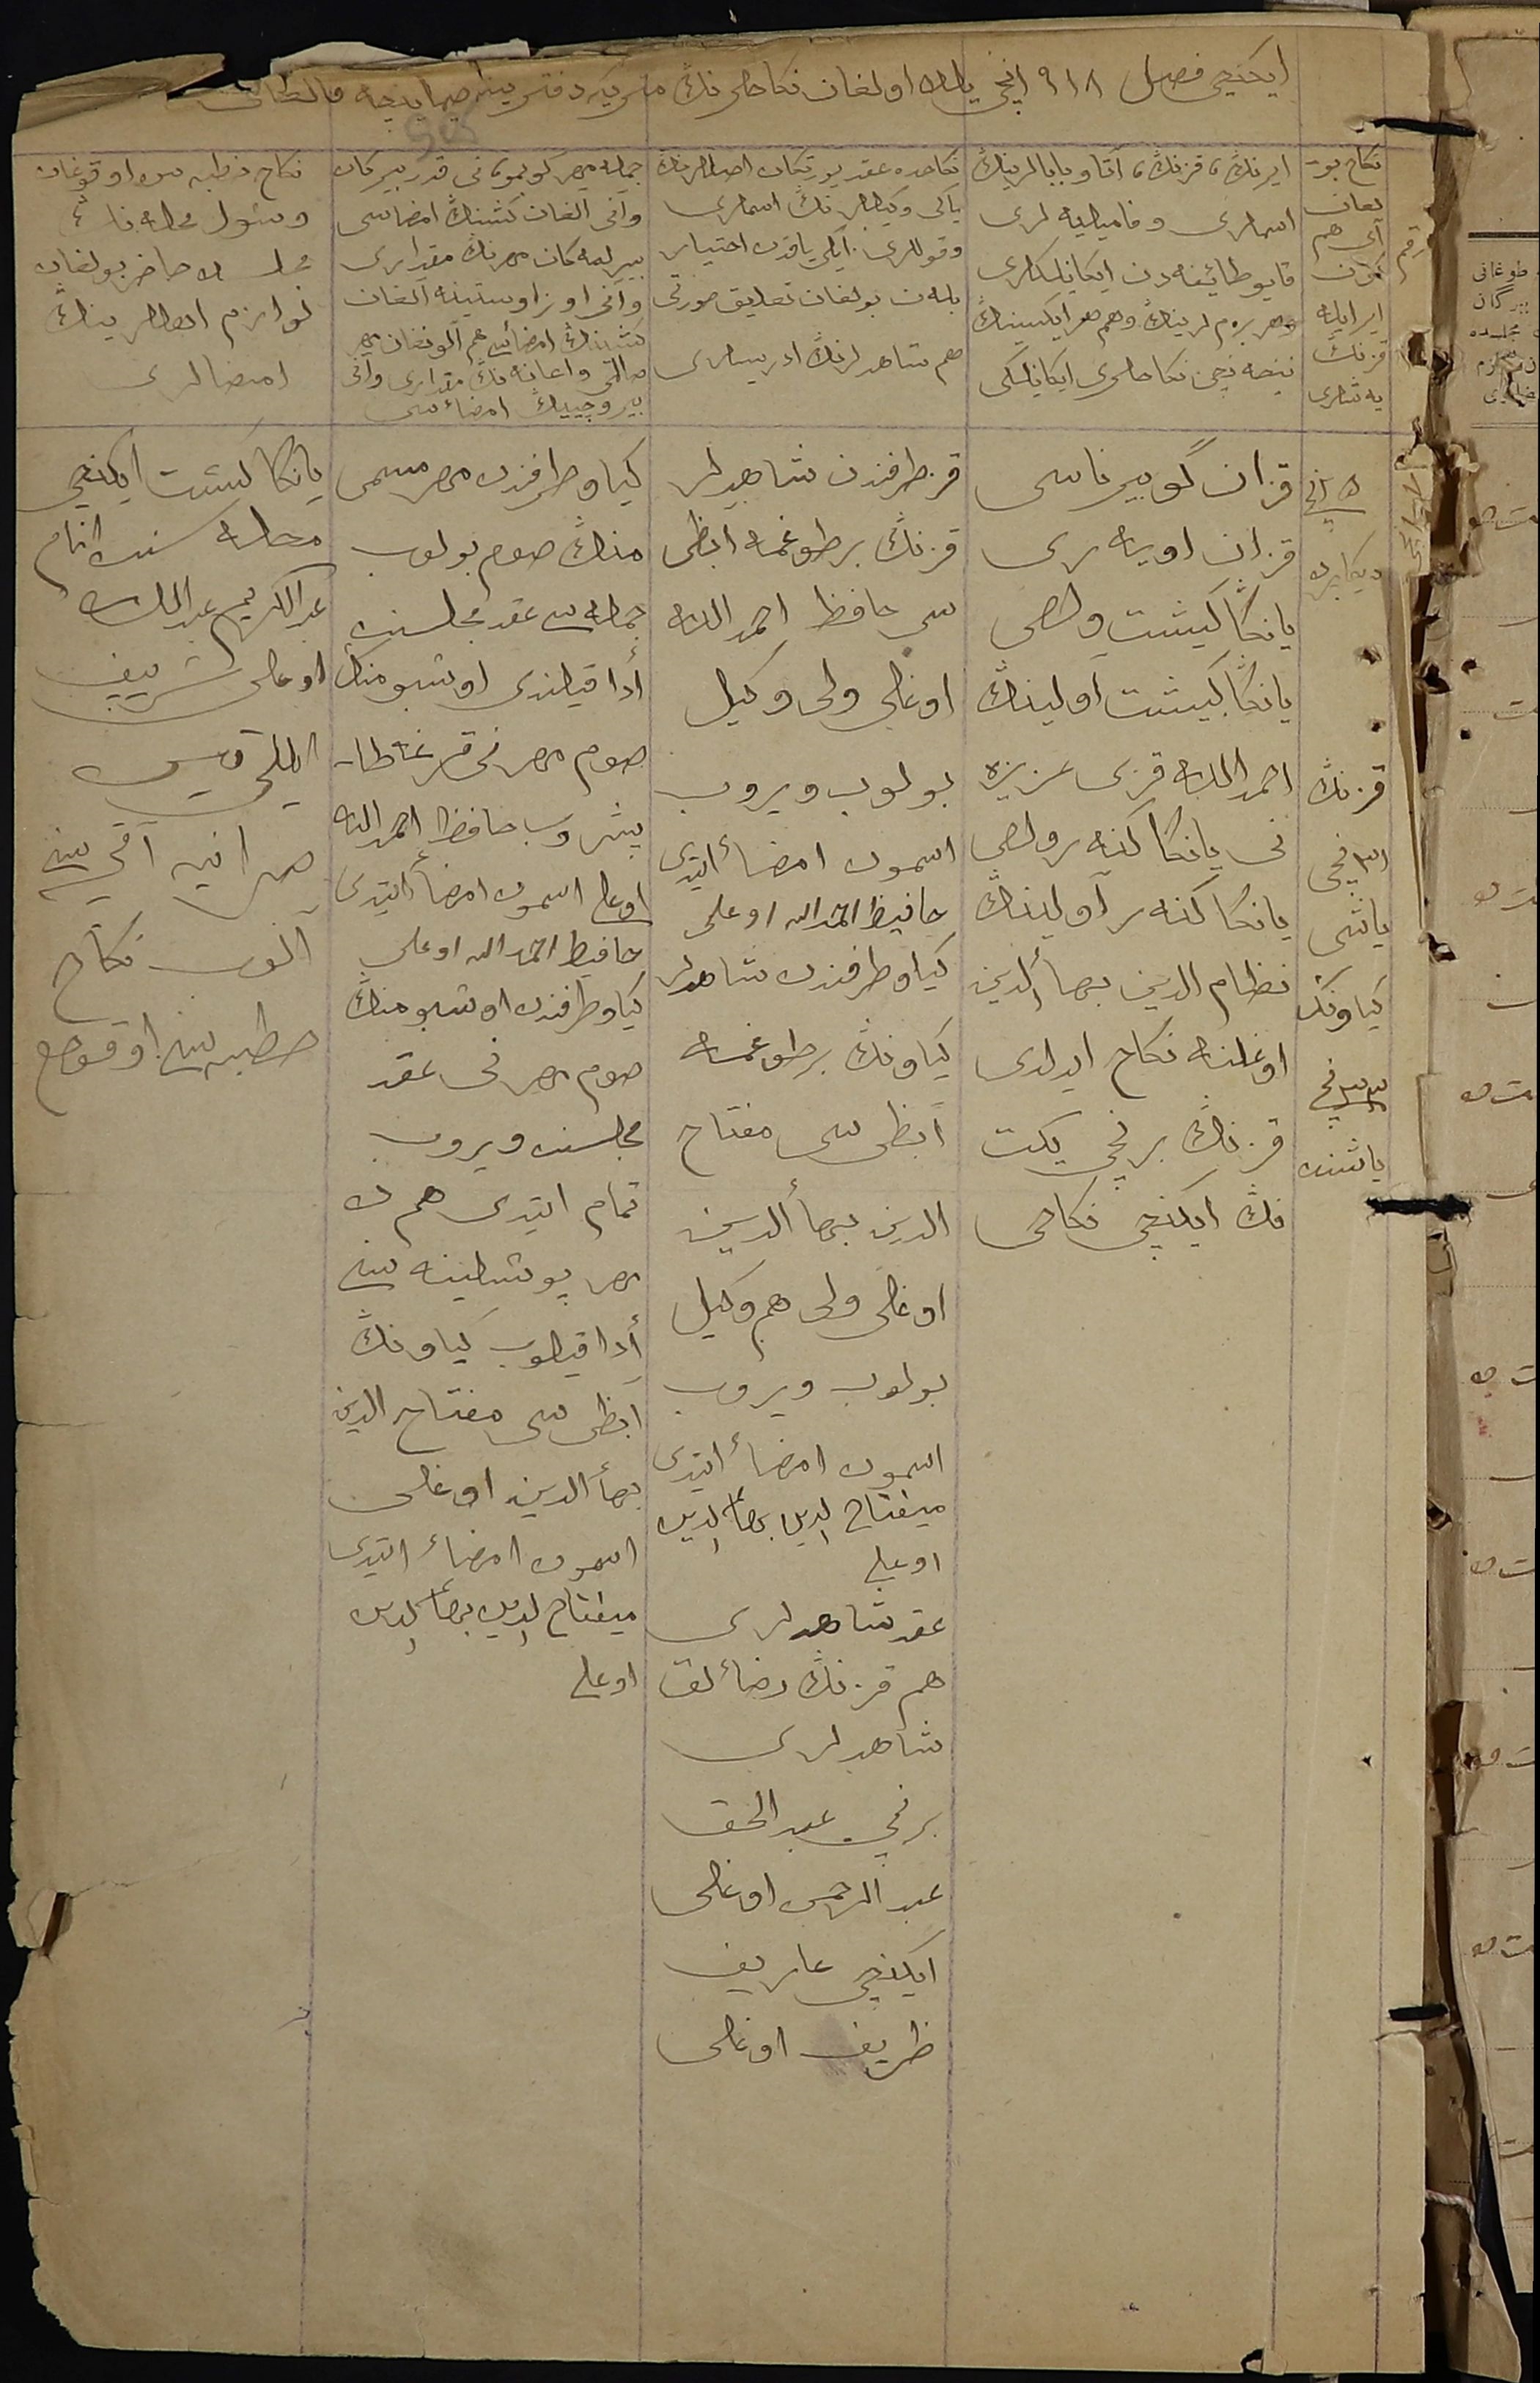 ایکنچی فصل ۹۱۸ نچی یلده اولغان نکاحلرنڭ متریکه دفترینه
رقم
نکاح بو
لغان
آی هم
کون
ایر ایله
قزنڭ
یه شلری
ایرنڭ، قزنڭ، آتا و بابالرینڭ
اسملری و فامیلیه لری
قایو طائفه دن ایکانلکلری
وهر برلرینڭ وهم هر ایکیسینڭ
نیچه نچی نکاحلری ایکانلکی
نکاحده عقد یورتکان اصللرنڭ
یاکی وکیللرنڭ اسملری
وقوللری. یاکی باقره اختیار
بله ن بولغان تعلیق صورتی
هم شاهدلرنڭ ادریسلری
جمله مهر کوبمو، نی قدر بیرگان
وآنی آلغان کشینڭ امضاسی
بیرلمه کان مهرنڭ مقداری
وآنی اوز اوستینه آلغان
کشینڭ امضاسی هم آلونغان مهر
مالی واعانه نڭ مقداری وآنی
بیروچینڭ امضاسی
نکاح خطبه سن اوقوغان
وشول محله ده
مجلسده حاضر بولغان
لوازم اهللرینڭ
امضالری
۵ نچی
دیکابرده
قزنڭ
۳۱ نچی
یاشی
کیاونڭ
۳۳ نچی
یاشنده
قزان گوبیرناسی
قزان اویازی
یانڭا کیشت ولصی
یانڭا کیشت آولینڭ
احمدالله قزی عزیزه
نی یانڭا کنه ر ولصی
یانڭا کنه ر آولینڭ
نظام الدین بهاءالدین
اوغلینه نکاح ایدلدی
قزنڭ برنچی یکت
نڭ ایکنچی نکاحی
قز طرفندن شاهدلر
قزنڭ برطوغمه ابظی
سی حافظ احمدالله
اوغلی ولی وکیل
بولوب ویروب
اسمون امضاء ایتدی
حافیظ احمدالله اوغلی
کیاو طرفندن شاهدلر
کیاونڭ برطوغمه
ابظی سی مفتاح
الدین بهاءالدین
اوغلی ولی هم وکیل
بولوب ویروب
اسمون امضاء ایتدی
میفتاح الدین بهاءالدین
اوغلی
عقد شاهدلری
هم قزنڭ رضاءلق
شاهدلری
برنچی عبدالحق
عبدالرحمن اوغلی
ایکنچی عاریف
ظریف اوغلی
کیاو طرفندن مهر مسمی
منڭ صوم بولوب
جمله سی عقد مجلسنده
أدا قیلندی اوشبو منڭ
صوم مهرنی قزغه
بیشروب حافظ احمدالله
اوغلی اسمون امضاء ایتدی
حافیظ احمدالله اوغلی
کیاو طرفندن اوشبو منڭ
صوم مهرنی عقد
مجلسنده ویروب
تمام ایتدی هم ده
مهر پوشلینه سنی
أدا قیلوب کیاونڭ
ابظی سی مفتاح الدین
بهاءالدین اوغلی
اسمون امضاء ایتدی
میفتاح الدین بهاءالدین
اوغلی
یانکا کیشت ایکنچی
محله سنده امام
عبدالکریم عبدالله
اوغلی شریف
آقچه سنی
آلوب نکاح
خطبه سنی اوقودم